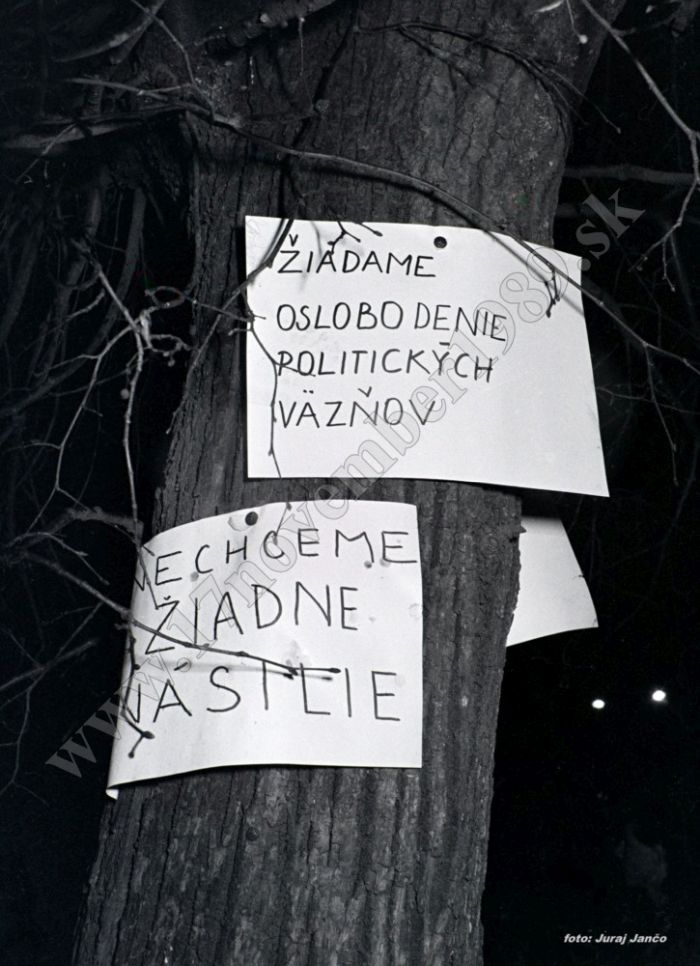 ŽIADAME
OSLOBODENIE
POLITICKÝCH
VÄZŇOV
NECHCEME
ŽIADNE
NÁSILIE
www.17november1989.sk
foto: Juraj Jančo